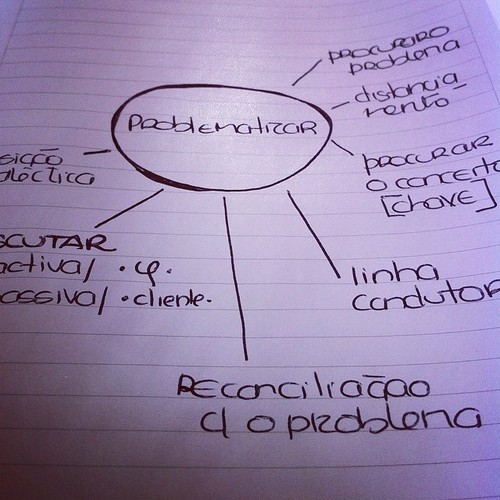 PROBLEMATIZAR
PROCURAR O
problema
distancia-
mento
PROCURAR
O conceito
[chave]
linha
condutor
REconciliação
d o problema
SCUTAR
activa/ . φ.
passiva/ . cliente.
sição
aléctica